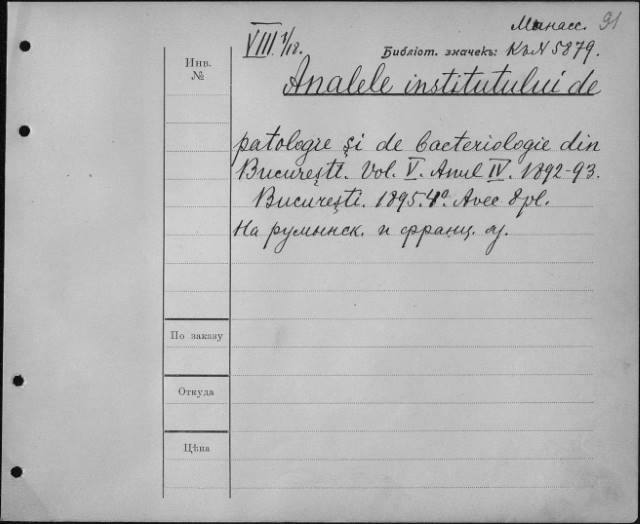 Манасс. 91
VIII 1/18. Библіот. значекъ: КъN 5879.
Инв.
№
Analele institutului de
patologie şi de bacteriologie din
Bucureşti. Vol. V. Anul IV. 1892-93.
Bucureşti. 1895. 4º. Avec 8 pl.
На румынск. и франц. яз.
По заказу
Откуда
Цѣна